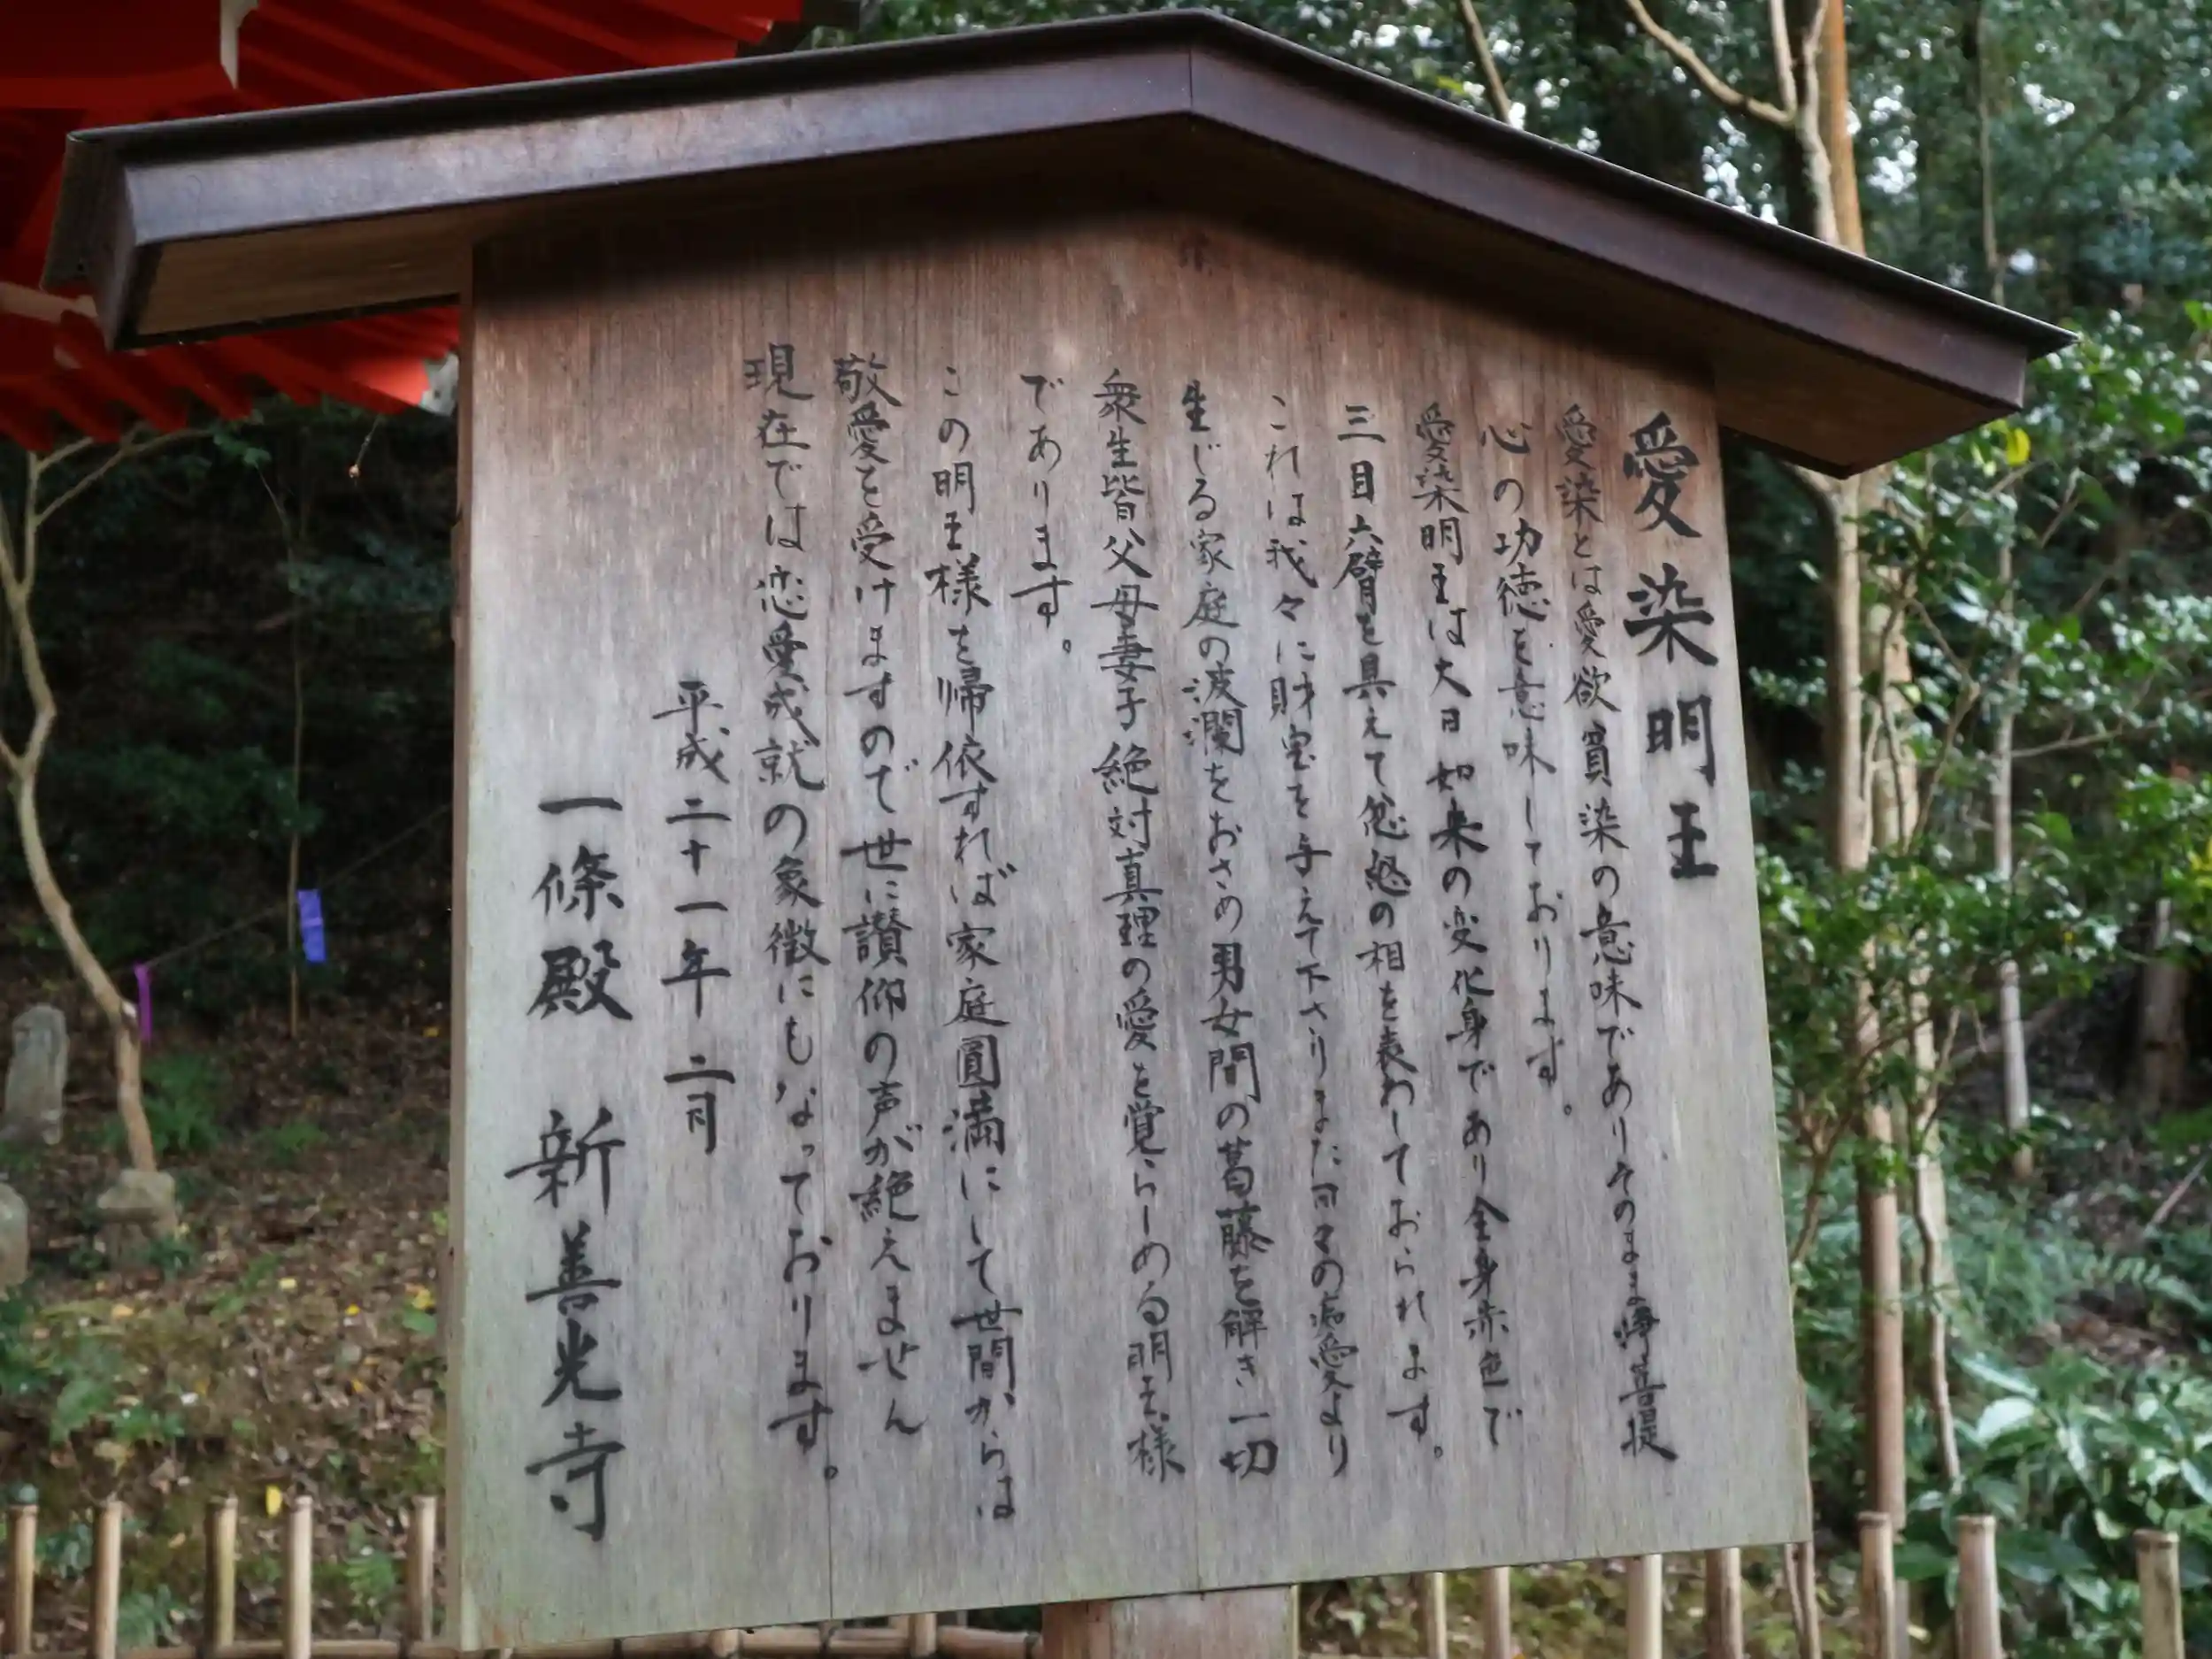 愛染明王
愛染とは愛欲貪染の意味でありそのまま浄菩提
心の功徳を意味しております。
愛染明王は大日如来の変化身であり全身赤色で
三目六臂を具えて忿怒の相を表わしておられます。
これは我々に財宝を与えて下さりまた日々の渇愛より
生じる家庭の波瀾をおさめ男女間の葛藤を解き一切
衆生皆父母妻子絶対真理の愛を覚らしめる明王様
であります。
この明王様を帰依すれば家庭圓満にして世間からは
敬愛を受けますので世に讃仰の声が絶えません
現在では恋愛成就の象徴にもなっております。
平成二十一年二月
一條殿 新善光寺